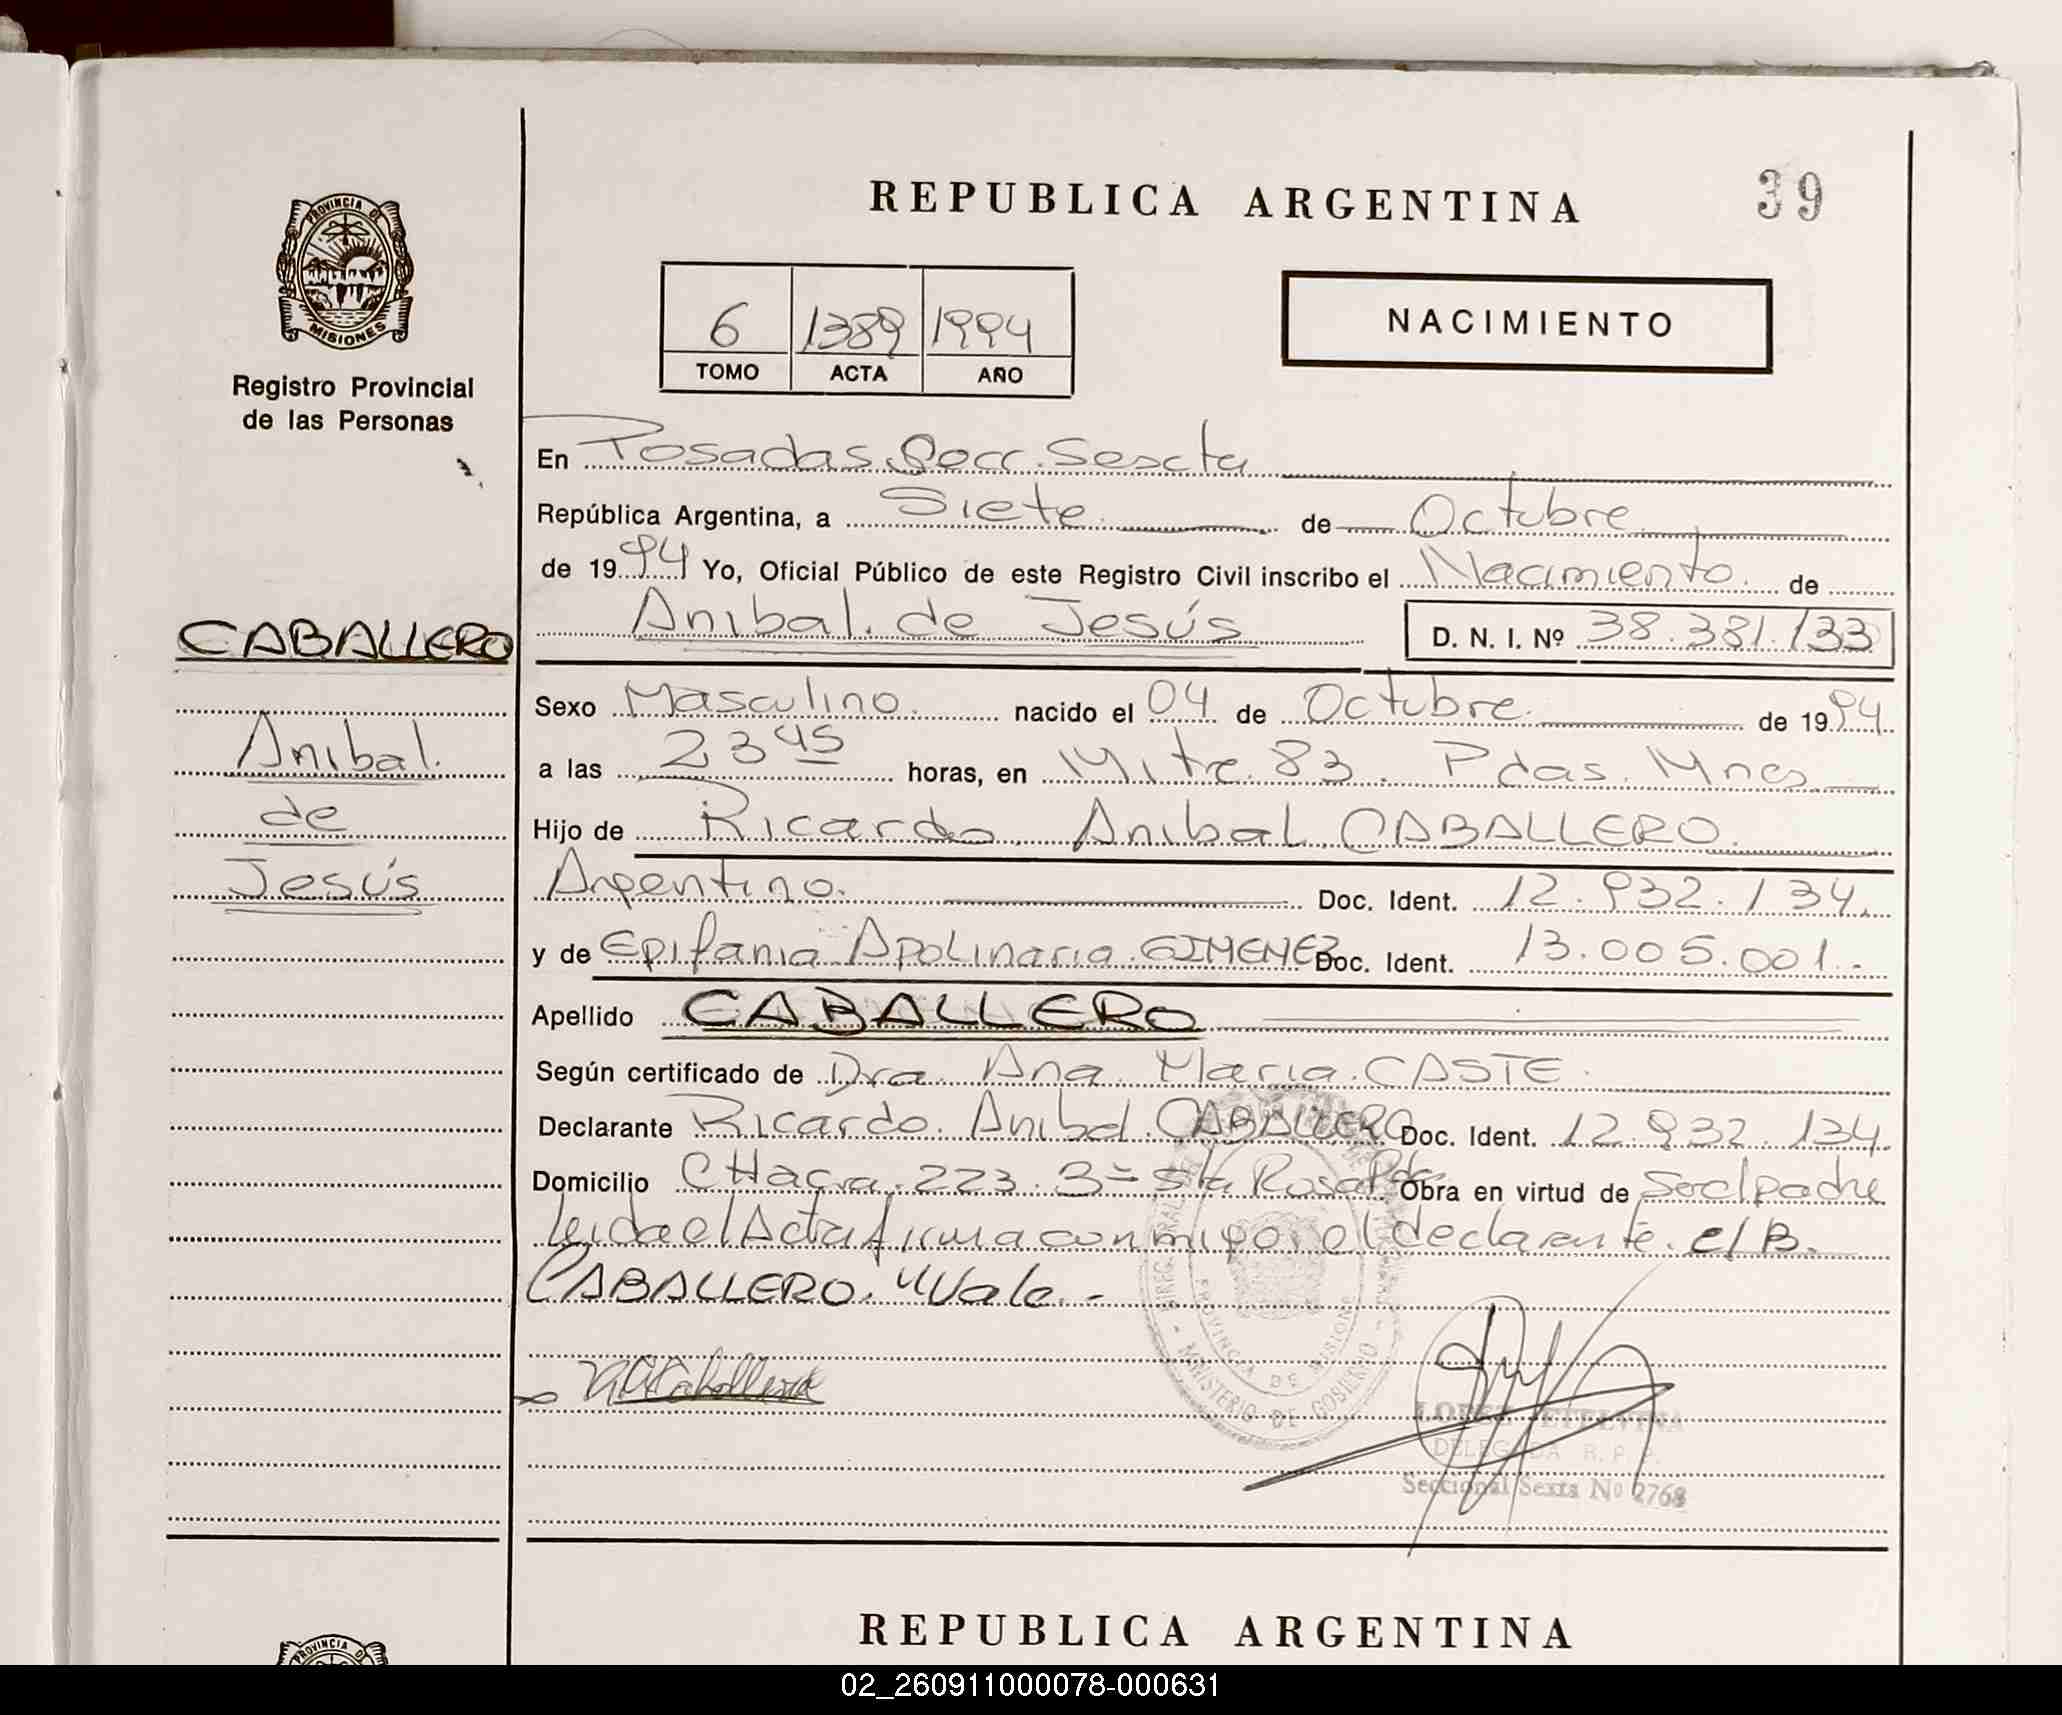 REPUBLICA ARGENTINA
39
PROVINCIA DE
MISIONES
Registro Provincial
de las Personas
6 1389 1994
TOMO ACTA AÑO
NACIMIENTO
En Posadas. Secc. Sexta
República Argentina, a Siete de Octubre
de 1994 Yo, Oficial Público de este Registro Civil inscribo el Nacimiento. de
Anibal. de Jesús D. N. I. Nº 38.381.133
CABALLERO
Anibal.
de
Jesús
Sexo Masculino. nacido el 04 de Octubre. de 1994.
a las 23 45 horas, en Mitre. 83. Pdas. Mnes
Hijo de Ricardo Anibal. CABALLERO.
Argentino. Doc. Ident. 12.932.134.
y de Epifania Apolinaria. GIMENEZ Doc. Ident. 13.005.001.-
Apellido CABALLERO
Según certificado de Dra. Ana. Maria. CASTE.
Declarante Ricardo. Anibal. CABALLERO Doc. Ident. 12.932.134.
Domicilio CHacra. 223. 3= Sta Rosa. Pdas. Obra en virtud de padre
leida el Acta firma con migo. el declarante. e/B.
CABALLERO. "Vale.-
MINISTERIO DE GOBIERNO
PROVINCIA DE MISIONES
LOPEZ ETELVINA
DELEGADA R. P. P.
Seccional Sexta Nº 2768
REPUBLICA ARGENTINA
PROVINCIA
02_260911000078-000631